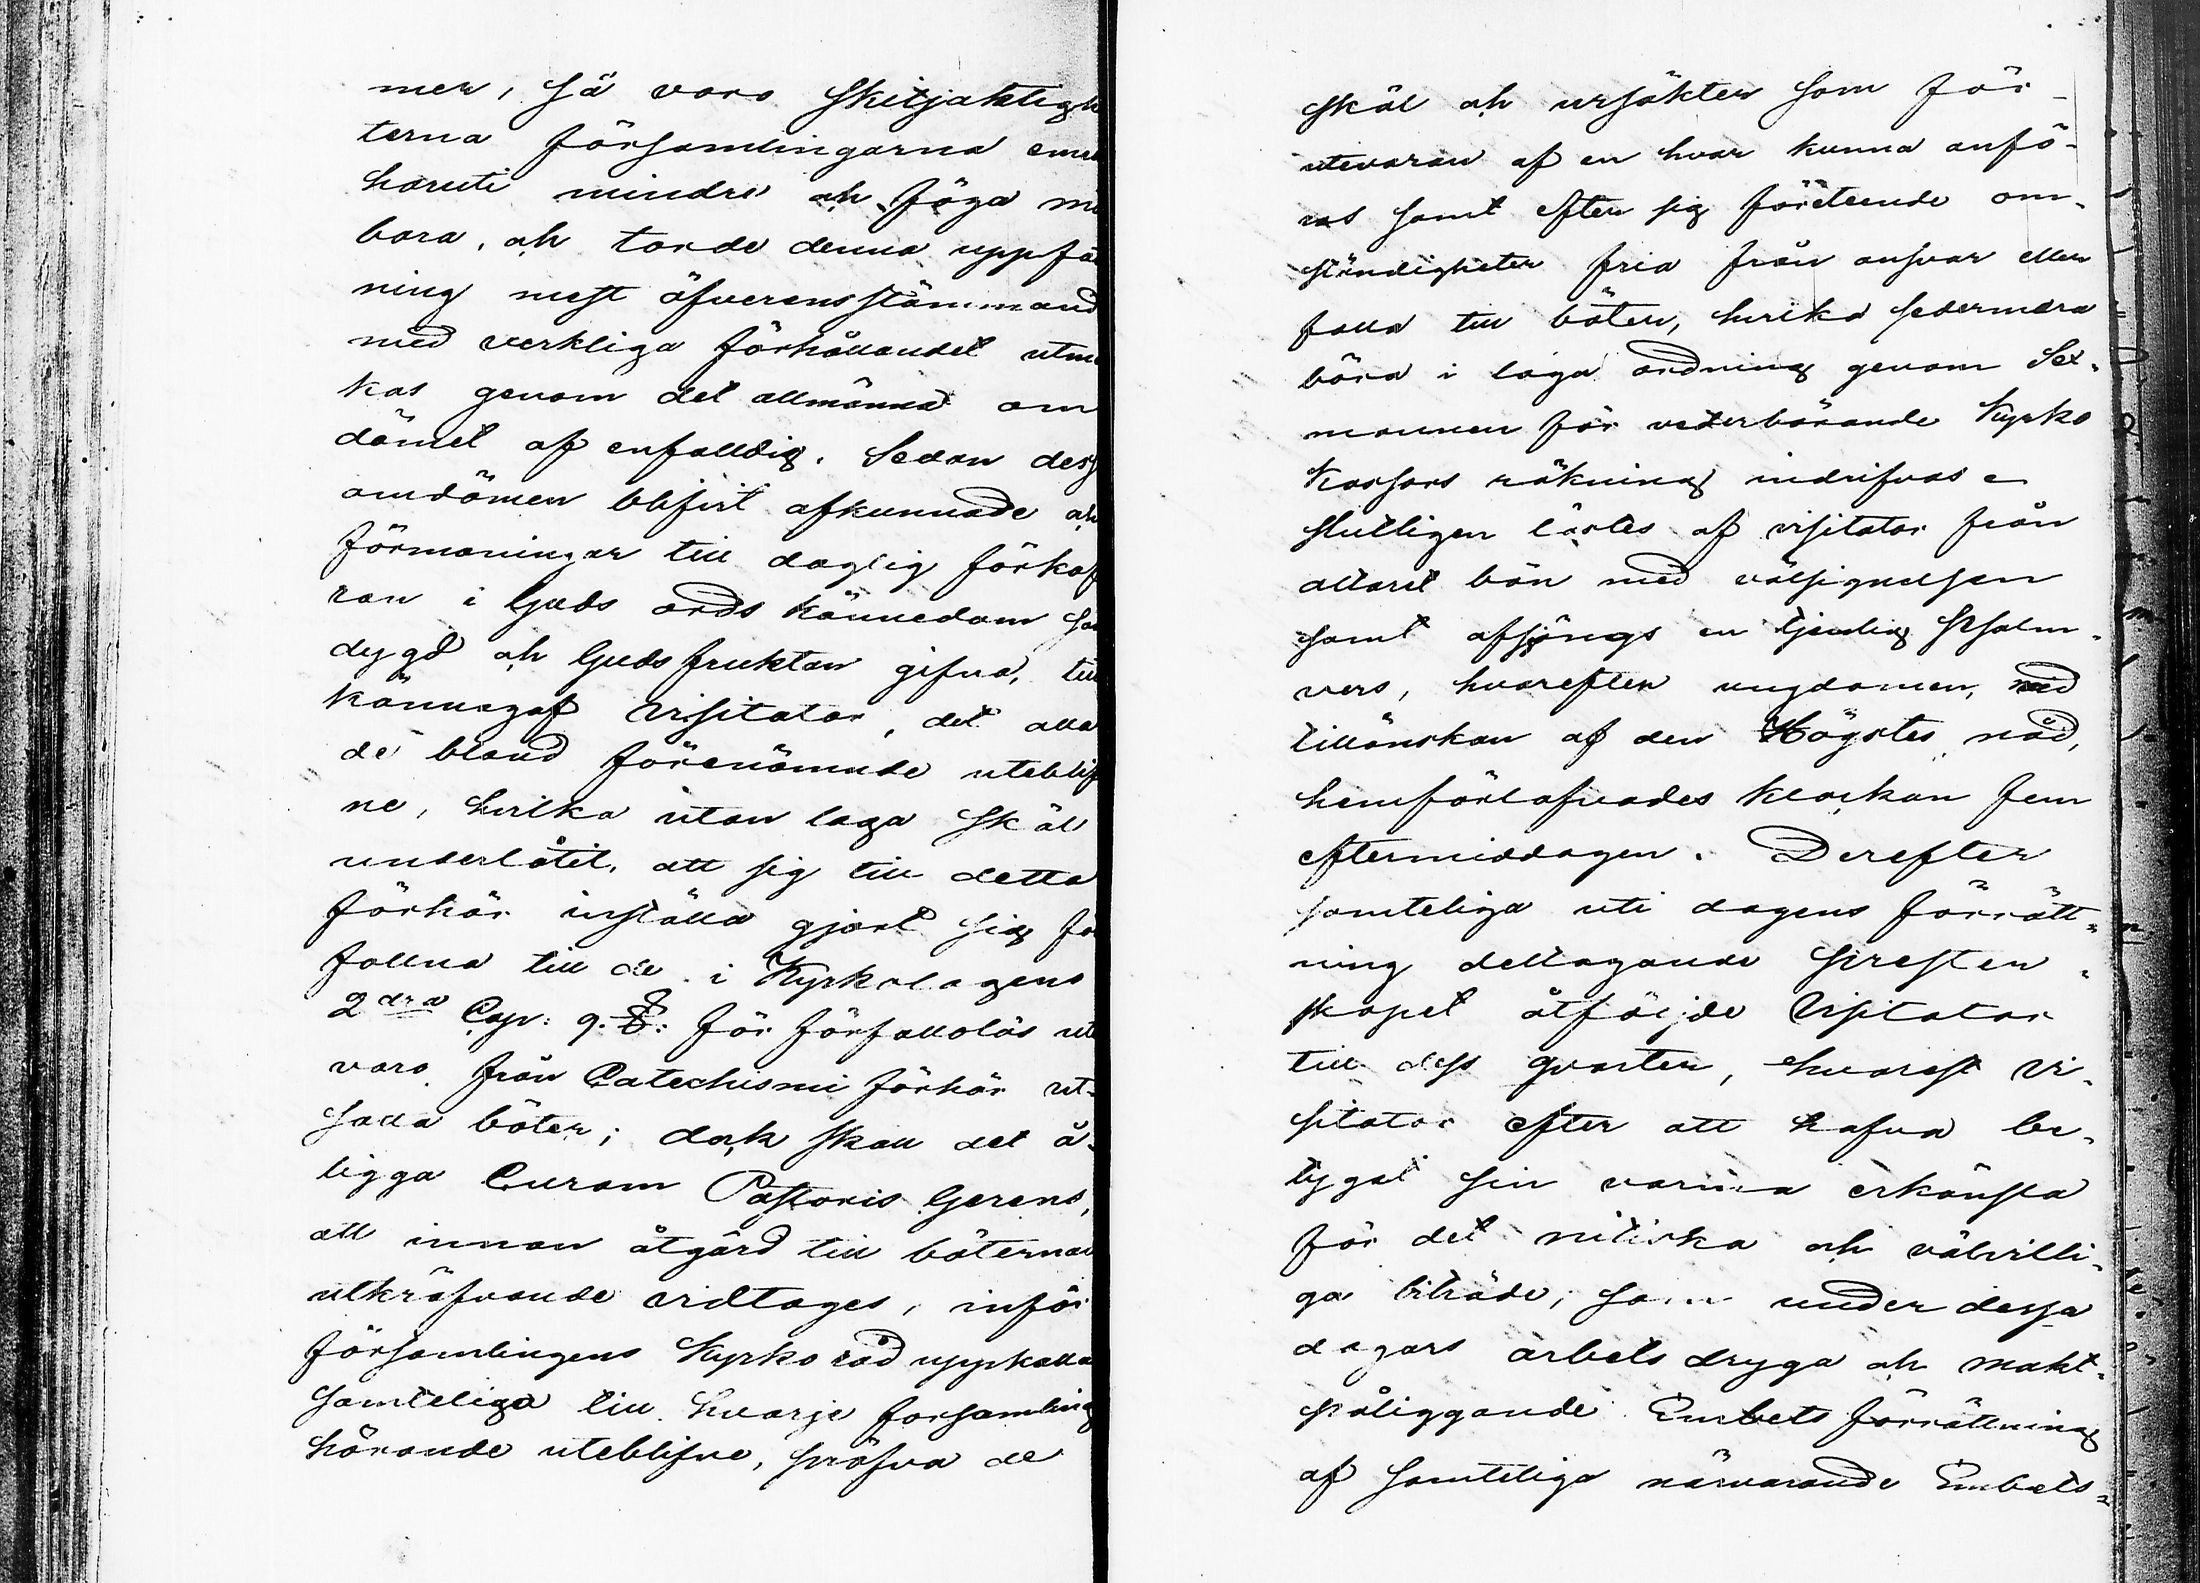 mer, så voro skiljaktigh
terna församlingarna eme
häruti mindre och föga mä
bara, och torde denna uppfå
ning mest öfverensstämmand
med verkliga förhållandet utmä
kas genom det allmänna om
dömet af enfalldig. Sedan dess
omdömen blifvit afkunnade och
förmaningar till daglig förkof
ran i Guds ords kännedom sa
dygd och Gudsfruktan gifna, till
kännagaf Visitator, det alla
de bland förenämnde uteblif
ne, hvilka utan laga skäl
underlåtit, att sig till detta
förhör inställa gjort sig för
fallna till de i Kyrkolagens
2dra Cap: 9. §: för förfallolös ute
varo från Catechismi förhör ut-
satta böter; dock skall det å-
ligga Curam Pastoris Gerens,
att innan åtgärd till böternas
utkräfvande vidtages, inför
församlingens Kyrko råd uppkalla
samteliga till hvarje församling
hörande uteblifne, pröfva de
skäl och ursäkter som för
utevaran af en hvar kunna anfö-
ras samt efter sig företeende om-
ständigheter fria från ansvar eller
fälla till böter, hvilka sedermera
böra i laga ordning genom Sex-
mannen för vederbörande Kyrko
Kassors räkning indrifvas
slutligen lästes af visitator från
altaret bön med välsignelsen
samt afsjöngs en tjenlig Psalm-
vers, hvarefter ungdomen, med
tillönskan af den Högstes nåd,
hemförlofvades klockan fem
eftermiddagen. Derefter
samteliga uti dagens förrätt-
ning deltagande Prester-
skapet åtföljde Visitator
till dess qvarter, hvarest Vi-
sitator efter att hafva be-
tygat sin varma erkänsla
för det nitiska och välvilli-
ga biträde, som under dessa
dagars arbets dryga och makt-
påliggande Embets förrättning
af samteliga närvarande Embets-